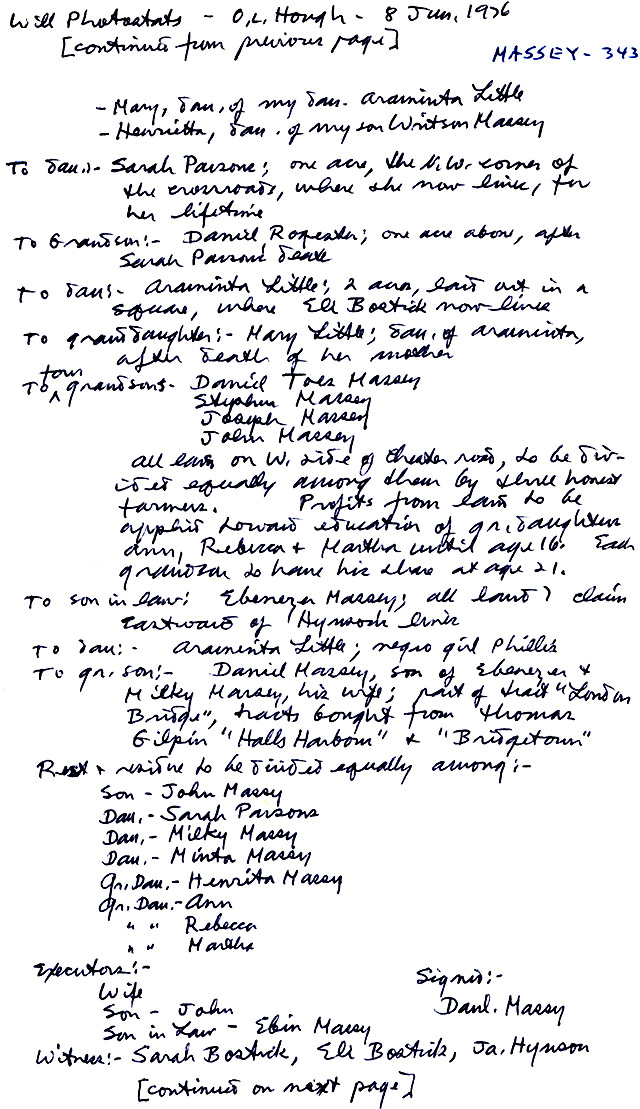 Will Photostats - O.L. Hough - 8 Jun, 1976
[continued from previous page]
MASSEY - 343
- Mary, dau. of my dau. Araminta Little
- Henrietta, dau. of my son Writson Massey
To dau:- Sarah Parsons; one acre, the N.W. corner of
the crossroads, where she now lives, for
her lifetime
To Grandson:- Daniel; one acre above, after
Sarah Parsons death
To dau:- Araminta Little; 2 acres, laid out in a
square, where Eli Bostick now lives
To granddaughter:- Mary Little; dau. of Araminta,
after death of her mother
To four grandsons- Daniel Toes Massey
Stephen Massey
Joseph Massey
John Massey
all land on W. side of road, to be div-
ided equally among them by three honest
farmers. Profits from land to be
applied toward education of gr. daughters
Ann, Rebecca & Martha until age 16. Each
grandson to have his share at age 21.
To son in law: Ebenezer Massey; all land I claim
Eastward of lines
To dau:- Araminta Little; negro girl Phillis
To gr. son:- Daniel Massey, son of Ebenezer &
Milky Massey, his wife; part of tract "London
Bridge", tracts bought from Thomas
Gilpin "Halls Harbour" & "Bridgetown"
Rest & residue to be divided equally among:-
Son - John Massy
Dau.- Sarah Parsons
Dau.- Milky Massy
Dau.- Minta Massy
Gr. Dau.- Henrita Massy
Gr. Dau.- Ann
" " Rebecca
" " Martha
Executors:-
Wife
Son - John
Son in Law - Ebin Massy
Signed:-
Danl. Massy
Witness:- Sarah Bostick, Eli Bostick, Ja. Hynson
[continued on next page]